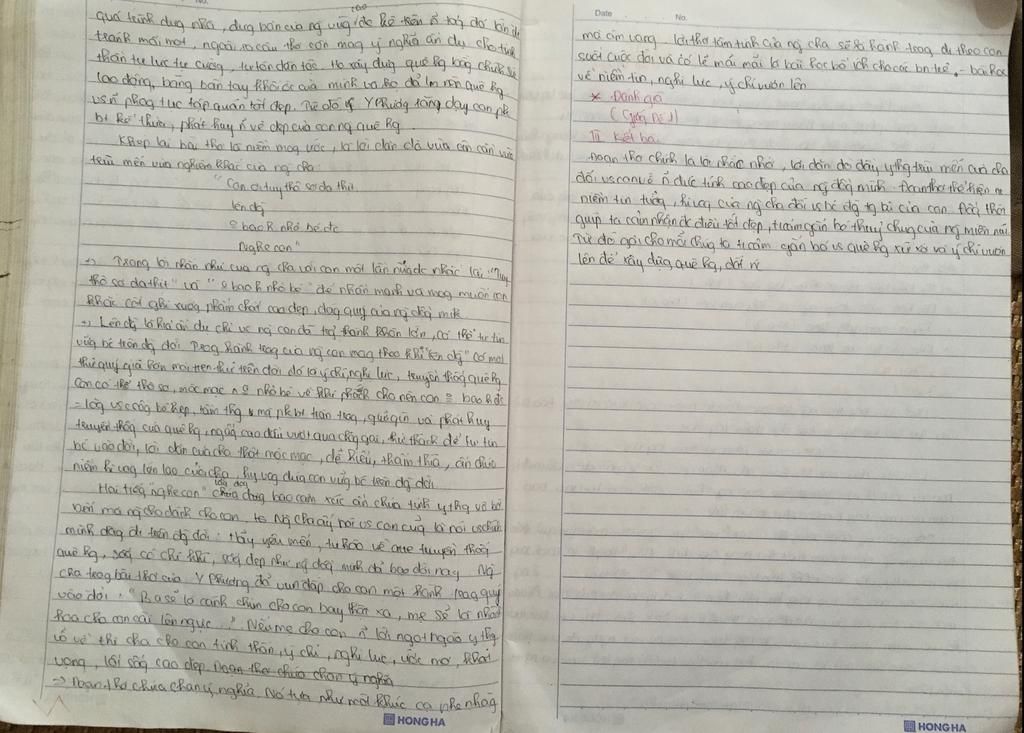 No.
quá trình dựng nhà, dựng bản của ng vùg cao để kê trên n tảg đá lớn để
tránh mối mọt, ngoài ra câu thơ còn mag ý nghĩa ẩn dụ cho tinh
thần tự lực tự cường, tự tôn dân tộc. Họ xây dựg quê hg bằg chính sức
lao động, bằng bàn tay khối óc của mình và họ đã làm nên quê hg
vs n phog tục tập quán tốt đẹp. Từ đó Y Phương tảng dạy con ph
bt kế thừa, phát huy n vẻ đẹp của con ng quê hg.
Khép lại bài thơ là niềm mog ước, là lời dặn dò vừa ân cần vừa
trìu mến vừa nghiêm khắc của ng cha:
"Con ơi tuy thô sơ da thịt
Lên đg
ko bao h nhỏ bé đc
Nghe con"
-> Trong lời nhắn nhủ của ng cha với con một lần nữa đc nhắc lại "Tuy
thô sơ da thịt" và "ko bao h nhỏ bé" để nhấn mạnh và mog muốn con
khắc cốt ghi xươg phẩm chất cao đẹp, đág quý của ng đồg mìh
-> Lên đg là h/a ẩn dụ chỉ về ng con đã trg thành khôn lớn, có thể tự tin
vữg bc trên đg đời. Trog hành trag của ng con mag theo khi "lên đg" có một
thứ quý giá hơn mọi thứ trên đời đó là ý chí, nghị lực, truyền thốg quê hg
Con có thể thô sơ, mộc mạc n ko nhỏ bé về khí phách cho nên con ko bao h đc
= lòg vs c sốg bé hẹp, tầm thg mà ph bt trân trọg, giữ gìn và phát huy
truyền thốg của quê hg, ngẩg cao đầu vượt qua chôg gai, thử thách để tự tin
bc vào đời, lời dặn của cha thật mộc mạc, dễ hiểu, thấm thía, ẩn chứa
niềm hi vọg lớn lao của cha, hy vọg đứa con vữg bc trên đg đời
Hai tiếg "nghe con" lắg đọg chứa đựg bao cảm xúc ẩn chứa tình y thg vô bờ
bến mà ng cha dành cho con. Ng cha ấy nói vs con cũg là nói vs chính
mình đag đi trên đg đời: Hãy yêu mến, tự hào về truyền thốg
quê hg, sốg có chí khí, sốg đẹp như ng đồg mình đã bao đời nay. Ng
cha trog bài thơ của Y Phương đã vun đắp cho con một hành trag quý
vào đời. "Ba sẽ là cánh chim cho con bay thật xa, mẹ sẽ là nhành
hoa cho con cài lên ngực..." Nếu mẹ cho con n lời ngọt ngào y thg
vỗ về thì cha cho con tinh thần, ý chí, nghị lực, ước mơ, khát
vọng, lối sốg cao đẹp. Đoạn thơ chứa chan ý nghĩa
=> Đoạn thơ chứa chan ý nghĩa. Nó tựa như một khúc ca nhẹ nhàg
HONG HA
Date No.
mà âm vang, lời thơ tâm tình của ng cha sẽ là hành trag đi theo con
suốt cuộc đời và có lẽ mãi mãi là bài học bổ ích cho các bn trẻ - bài học
về niềm tin, nghị lực, ý chí vươn lên
* Đánh giá
III Kết bài
Đoạn thơ chính là lời nhắc nhở, lời dặn dò đầy y thg trìu mến của cha
đối vs con về n đức tính cao đẹp của ng đồg mình. Đoạn thơ thể hiện
niềm tin tưởg, hi vọg của ng cha đối vs bc đg tg lai của con. Đồg thời
giúp ta cảm nhận đc điều tốt đẹp, t/cảm gắn bó thuỷ chug của ng miền núi.
Từ đó gợi cho mỗi chúg ta t/cảm gắn bó vs quê hg xứ xở và ý chí vươn
lên để xây dựg quê hg, đất nc
HONG HA